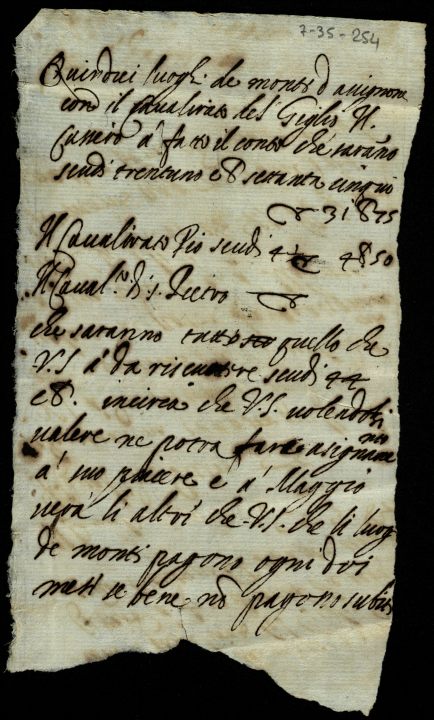 7-35-254
Quindici luoghi de monti d avignone
con il Cavalirato del Giglio Il
Camero à fato il conto che sarano
scudi trentuno e 8 setanta cinquo
31 875
Il Cavalirato Pio scudi 4850
Il Caval.to di s. Pietro
che saranno tutto quello che
V.S à da riscuotere scudi 44
e 8. incirca che V.S. volendosi
valere ne potra fare asigna
à suo piacere e à Maggio
verà li altri che V.S. che li luog
de monti pagono ogni doi
mesi se bene nõ pagono subito